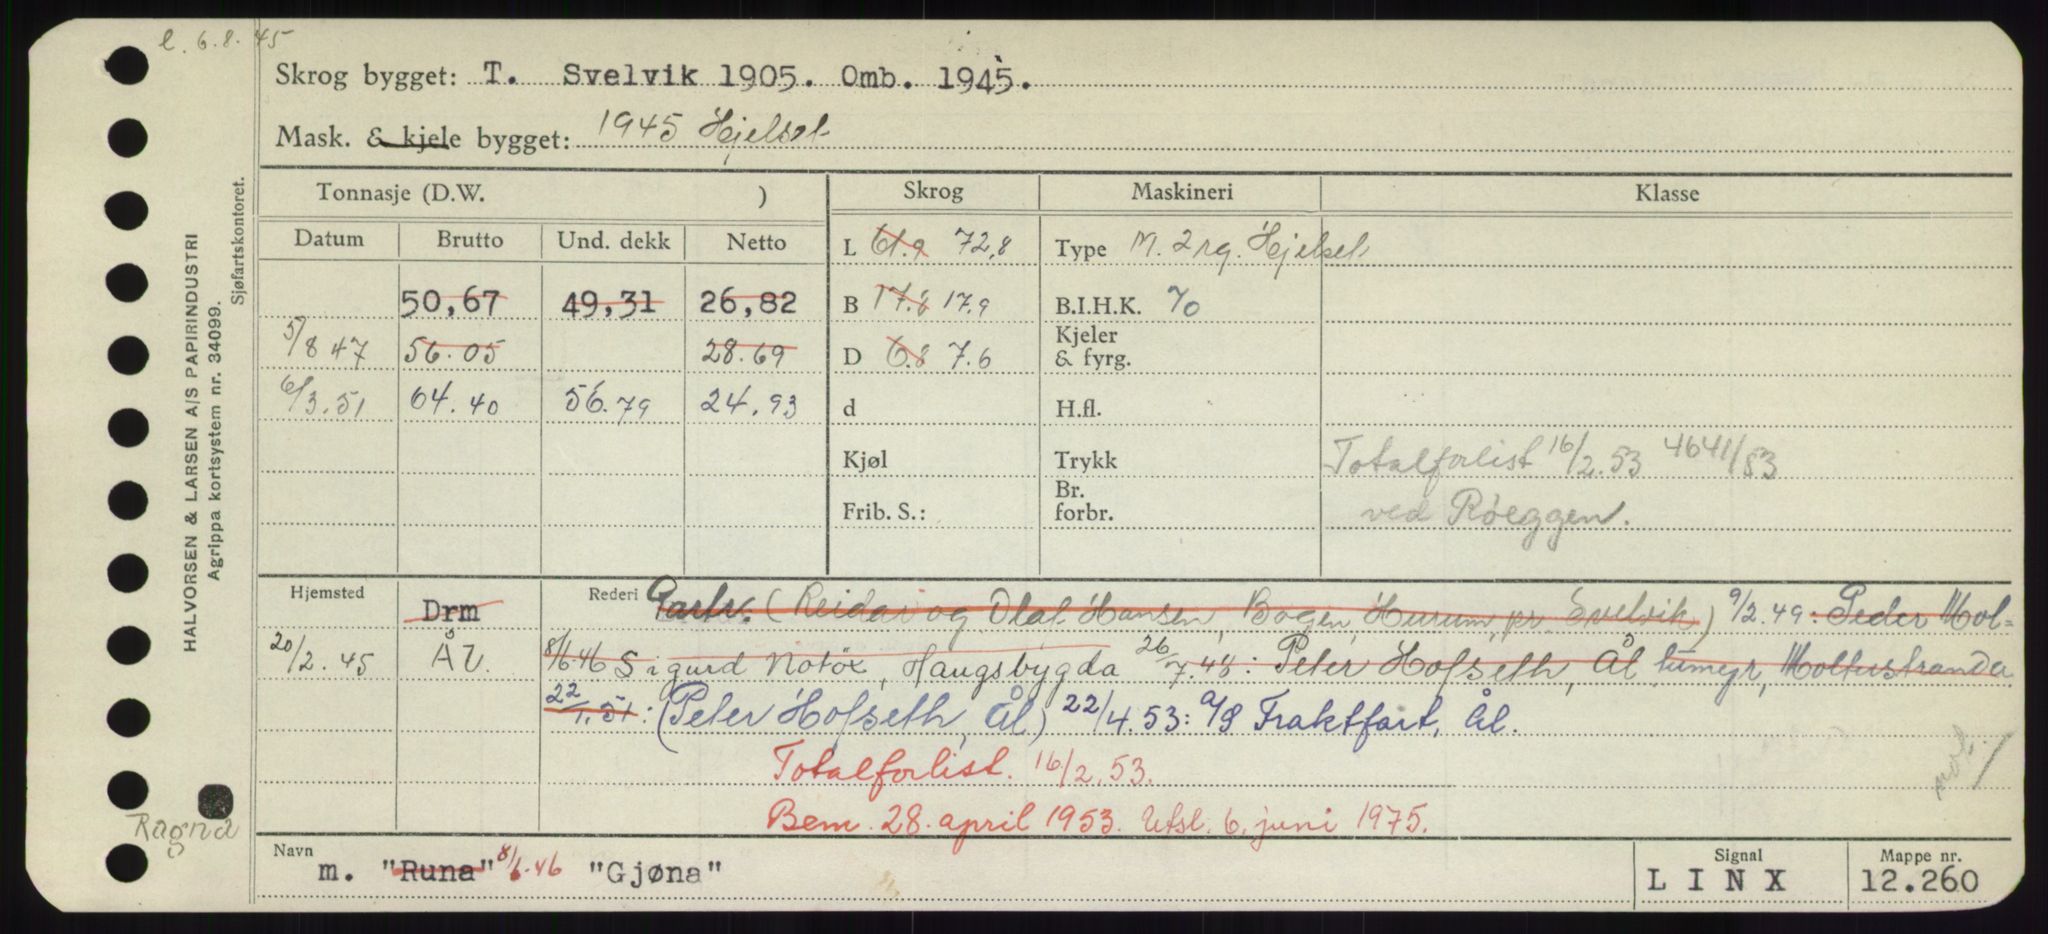 l. 6.8.45
Skrog bygget: T. Svelvik 1905. Omb. 1945.
Mask. & kjele bygget: 1945 Hjelset
Tonnasje (D.W. ) Skrog Maskineri Klasse
Datum Brutto Und. dekk Netto L 61.9 72,8 Type M. 2 rg. Hjelset
50,67 49,31 26,82 B 17.8 17.9 B.I.H.K. 70
5/8 47 56.05 28.69 D 6.8 7.6 Kjeler & fyrg.
6/3.51 64.40 56.79 24.93 d H.fl.
Kjøl Trykk Totalforlist 16/2.53 4641/53
Frib. S.: Br. forbr. ved Röeggen.
Hjemsted Drm Rederi Partr. (Reidar og Olaf Hansen, Bogen, Hurum, pr. Svelvik) 9/2.49: Peder Mol=
20/2.45 Ål. 8/6.46 Sigurd Notöx, Haugsbygda 26/7.48: Peter Hofseth, Ål tumyr, Moltustranda
22/1.51: (Peter Hofseth, Ål) 22/4.53: A/S Fraktfart, Ål.
Totalforlist. 16/2.53.
Bem. 28. april 1953. Utsl. 6. juni 1975.
Navn m. "Runa" 8/6.46 "Gjøna" Signal LINX Mappe nr. 12.260
Ragna
HALVORSEN & LARSEN A/S PAPIRINDUSTRI
Agrippa kortsystem nr. 34099.
Sjøfartskontoret.